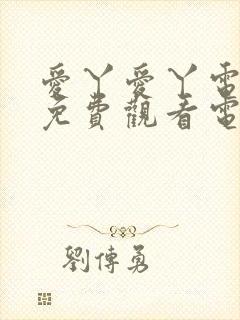 愛丫愛丫電
免費觀看電
劉傳勇